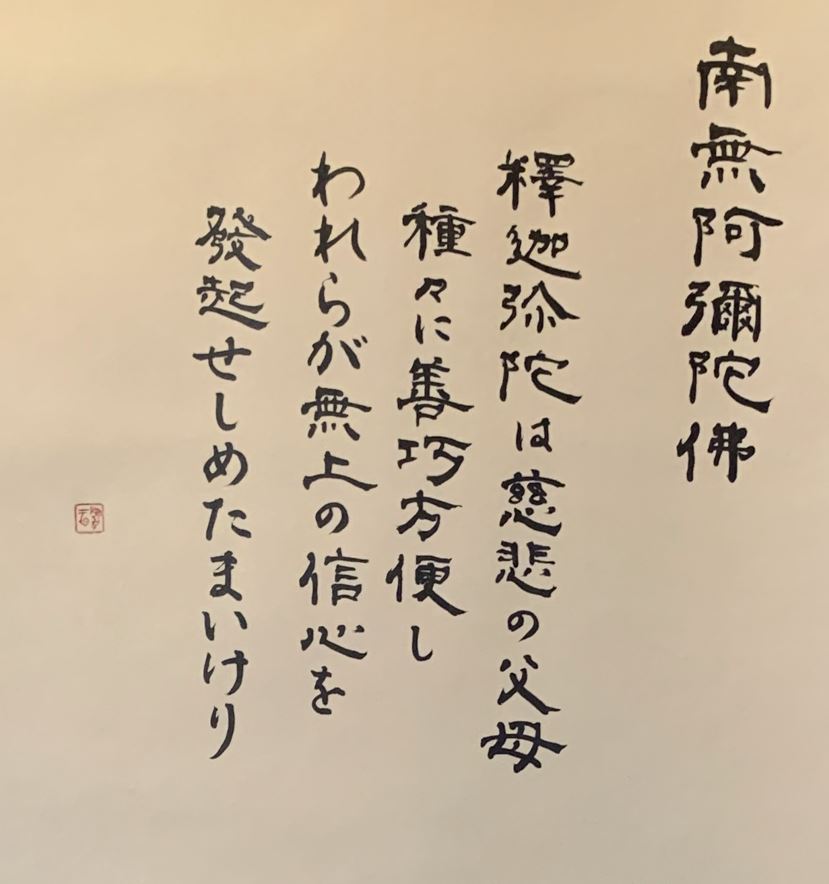 南無阿彌陀佛
釋迦弥陀は慈悲の父母
種々に善巧方便し
われらが無上の信心を
發起せしめたまいけり